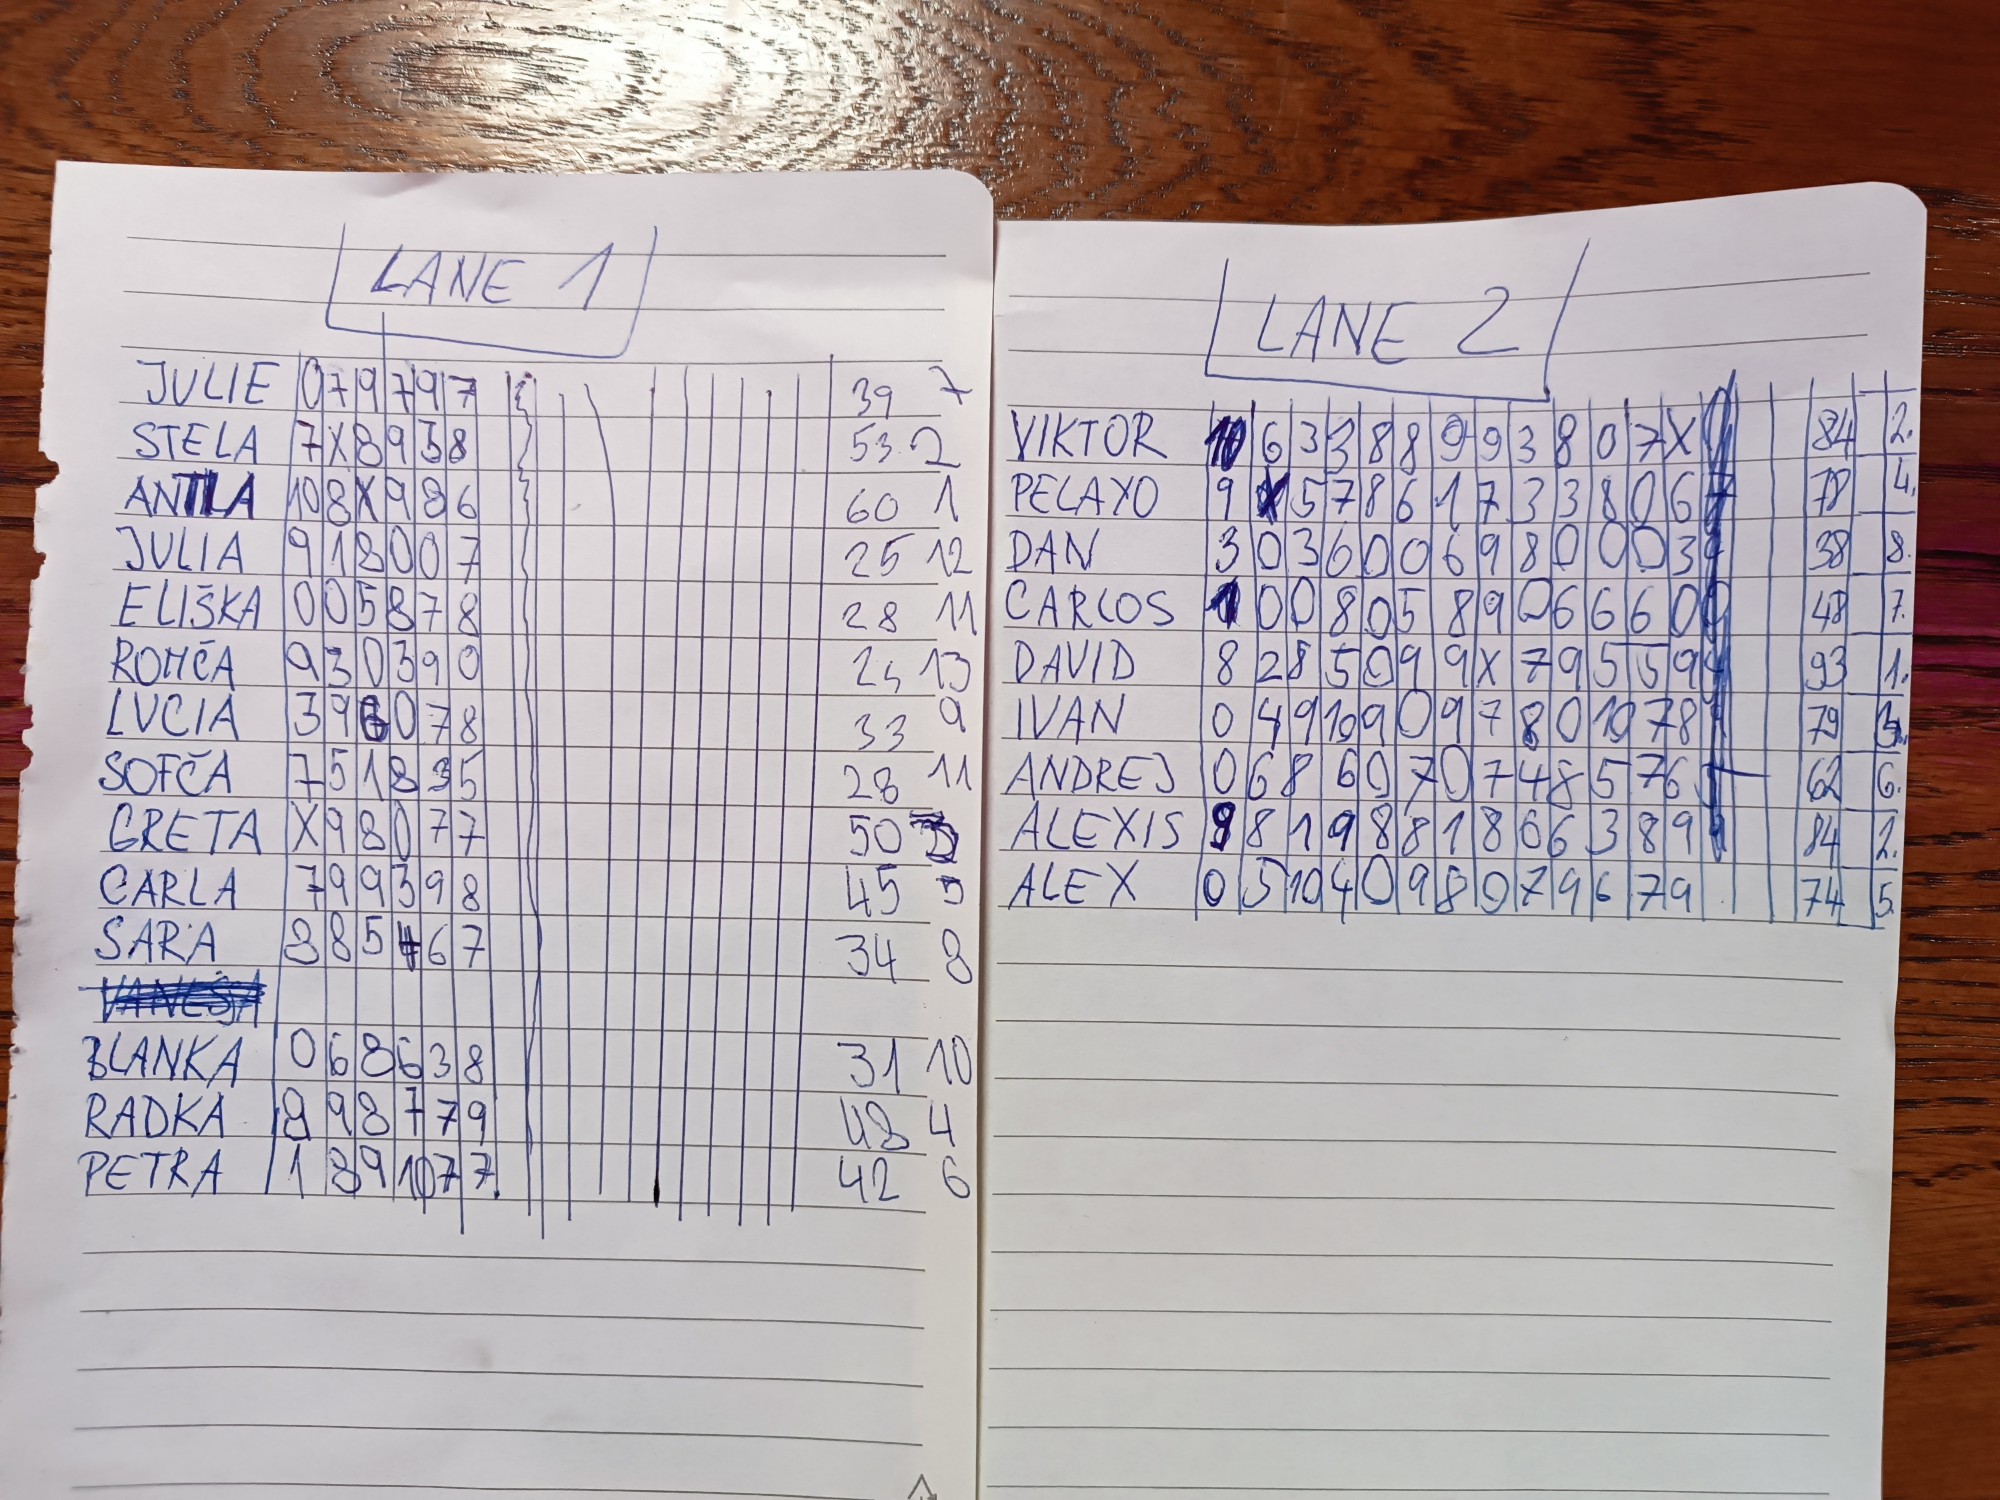 LANE 1
JULIE 0 7 9 7 9 7 39 7
STELA 7 X 8 9 3 8 53 2
ANTLA 10 8 X 9 8 6 60 1
JULIA 9 1 8 0 0 7 25 12
ELIŠKA 0 0 5 8 7 8 28 11
ROMČA 9 3 0 3 9 0 24 13
LUCIA 3 9 6 0 7 8 33 9
SOFČA 7 5 1 8 3 5 28 11
GRETA X 9 8 0 7 7 50 3
CARLA 7 9 9 3 9 8 45 5
SARA 8 8 5 4 6 7 34 8
BLANKA 0 6 8 6 3 8 31 10
RADKA 8 9 8 7 7 9 48 4
PETRA 1 8 9 10 7 7 42 6
LANE 2
VIKTOR 10 6 3 3 8 8 9 9 3 8 0 7 X 84 2.
PELAYO 9 X 5 7 8 6 1 7 3 3 8 0 6 78 4.
DAN 3 0 3 6 0 0 6 9 8 0 0 0 3 38 8.
CARLOS 1 0 0 8 0 5 8 9 0 6 6 6 0 48 7.
DAVID 8 2 8 5 0 9 9 X 7 9 5 5 9 93 1.
IVAN 0 4 9 10 9 0 9 7 8 0 10 7 8 79 3.
ANDREJ 0 6 8 6 0 7 0 7 4 8 5 7 6 62 6.
ALEXIS 9 8 1 9 8 8 1 8 6 6 3 8 9 84 2.
ALEX 0 5 10 4 0 9 8 0 7 9 6 7 9 74 5.